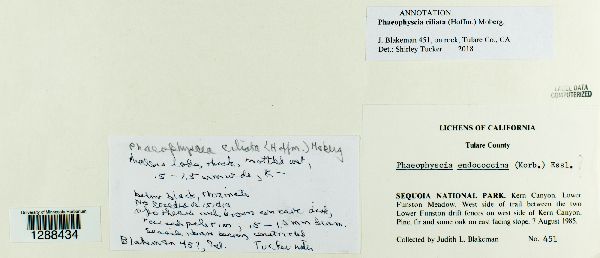 ANNOTATION
Phaeophyscia ciliata (Hoffm.) Moberg
J. Blakeman 451, on rock, Tulare Co., CA
Det.: Shirley Tucker 2018
LABEL DATA
COMPUTERIZED
LICHENS OF CALIFORNIA
Tulare County
Phaeophyscia endococcina (Korb.) Essl.
SEQUOIA NATIONAL PARK. Kern Canyon, Lower
Funston Meadow. West side of trail between the two
Lower Funston drift fences on west side of Kern Canyon.
Pine, fir and some oak on east facing slope. 7 August 1985.
Collected by Judith L. Blakeman No. 451
Phaeophyscia ciliata (Hoffm.) Moberg
lobes, thick,
.5 - 1.5 mm wide, K-
below black,
No
.5 - 1.3 mm diam.
Blakeman 451, Det. Tucker
University of Minnesota Herbarium
1288434